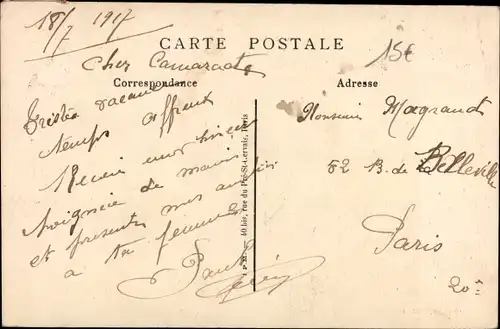 18/7 1917
CARTE POSTALE
15€
Cher Camarade
Correspondance
Adresse
Tristes vacances
temps affreux
Reçois une
poignée de main
et présente mes
a ta femme
Paul
40 bis, rue du Pré-St-Gervais, Paris
Monsieur Magraud
52 B. de Belleville
Paris
20